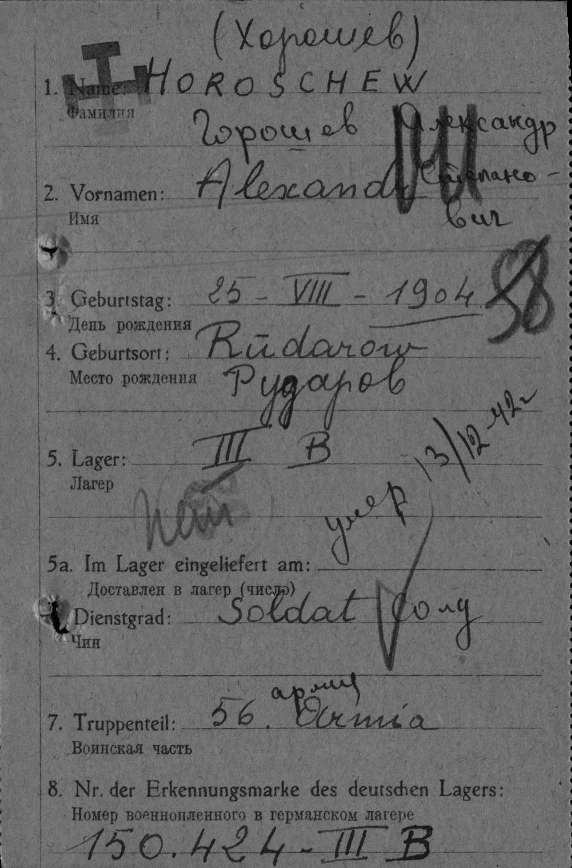 (Хорошев)
1. Name: HOROSCHEW
Фамилия
Горошев Александр
2. Vornamen: Alexandr Степано-
Имя
вич
3. Geburtstag: 25 - VIII - 1904 38
День рождения
4. Geburtsort: Rudarow
Место рождения Рударов
5. Lager: III B
Лагер
умер 13/12-42г
5a. Im Lager eingeliefert am:
Доставлен в лагер (число)
Dienstgrad: Soldat Солд
Чин
армия
7. Truppenteil: 56. Armia
Воинская часть
8. Nr. der Erkennungsmarke des deutschen Lagers:
Номер военнопленного в германском лагере
150.424 - III B